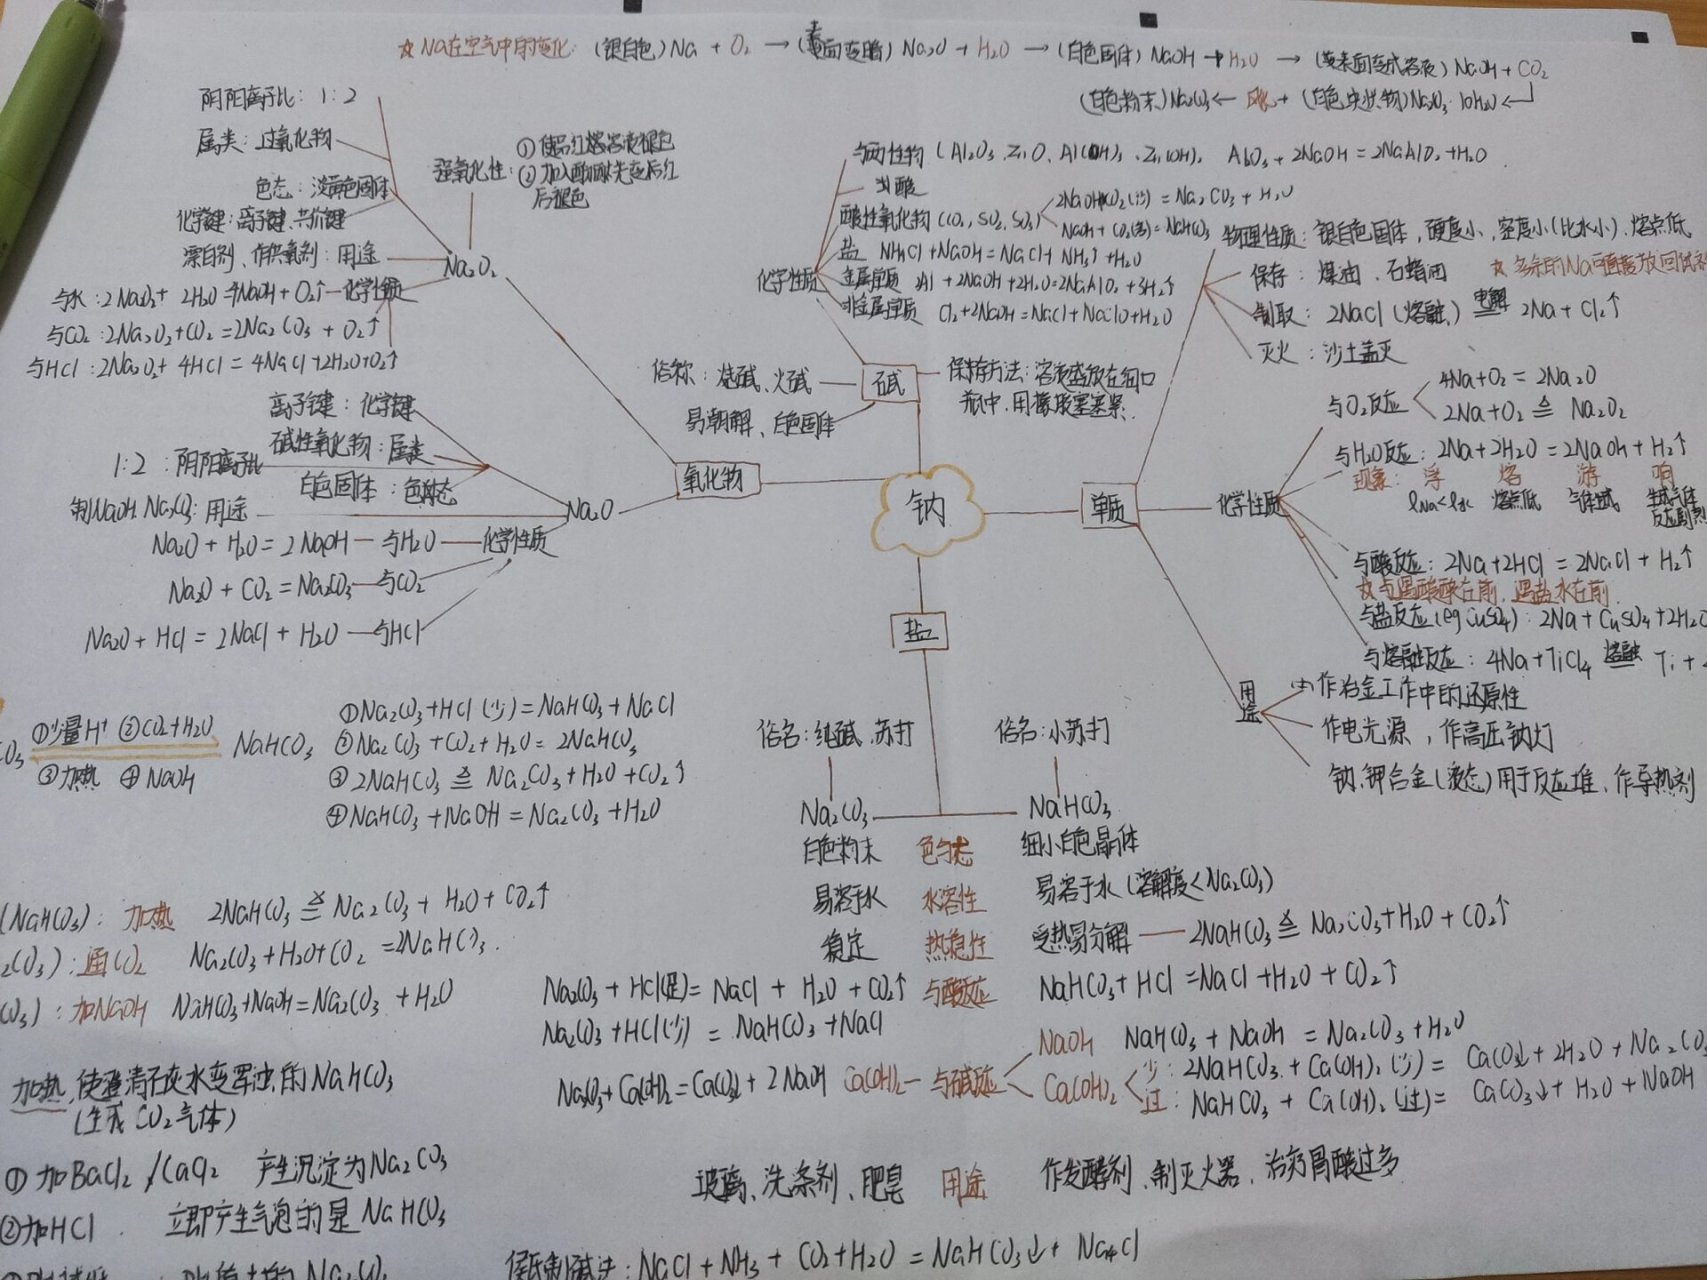 ☆Na在空气中的变化:(银白色)Na + O₂ →(表面变暗)Na₂O + H₂O →(白色固体)NaOH + H₂O →(表面变成溶液)NaOH + CO₂
(白色粉末)Na₂CO₃ ← 风化 (白色块状物)Na₂CO₃·10H₂O ←
阴阳离子比:1:2
属类:过氧化物
色态:淡黄色固体
化学键:离子键、共价键
漂白剂、作供氧剂:用途
Na₂O₂
强氧化性:
①使品红溶液褪色
②加入酚酞先变后红
后褪色
与水:2Na₂O₂+ 2H₂O =4NaOH + O₂↑ 化学性质
与CO₂:2Na₂O₂+CO₂ =2Na₂CO₃ + O₂↑
与HCl:2Na₂O₂+ 4HCl = 4NaCl+2H₂O+O₂↑
离子键:化学键
碱性氧化物:属类
1:2:阴阳离子比
白色固体:色态
制NaOH Na₂CO₃:用途
Na₂O
Na₂O + H₂O = 2NaOH 与H₂O 化学性质
Na₂O + CO₂ = Na₂CO₃ 与CO₂
Na₂O + HCl = 2NaCl + H₂O 与HCl
氧化物
钠
与两性物(Al₂O₃、ZnO、Al(OH)₃、Zn(OH)₂ Al₂O₃+2NaOH=2NaAlO₂+H₂O
酸
酸性氧化物(CO₂、SO₂、SO₃)
2NaOH+CO₂(少)= Na₂CO₃ + H₂O
NaOH + CO₂(多)= NaHCO₃
盐 NH₄Cl +NaOH = NaCl + NH₃↑ +H₂O
化学性质
金属单质 2Al + 2NaOH+2H₂O=2NaAlO₂ +3H₂↑
非金属单质 Cl₂+2NaOH=NaCl+NaClO+H₂O
俗称:烧碱、火碱
易潮解、白色固体
碱
保存方法:溶液盛放在细口
瓶中,用橡胶塞塞紧.
单质
物理性质:银白色固体,硬度小、密度小(比水小)、熔点低
保存:煤油、石蜡油 ☆多余的Na可直接放回试
制取:2NaCl(熔融) 电解 2Na + Cl₂↑
灭火:沙土盖灭
化学性质
与O₂反应
4Na+O₂ = 2Na₂O
2Na+O₂ ≜ Na₂O₂
与H₂O反应:2Na+2H₂O = 2NaOH + H₂↑
现象:浮 熔 游 响
ρNa<ρ水 熔点低 气体生成 生成气体
反应剧烈
与酸反应:2Na+2HCl = 2NaCl + H₂↑
☆与遇酸酸在前,遇盐水在前
与盐反应(eg CuSO₄):2Na + CuSO₄+2H₂O
与熔融反应:4Na+TiCl₄ 熔融 Ti +
用途
(1)作冶金工作中的还原性
作电光源,作高压钠灯
钠、钾合金(液态)用于反应堆、作导热剂
盐
CO₃ ①少量H⁺ ②CO₂+H₂O NaHCO₃
③加热 ④NaOH
①Na₂CO₃+HCl(少)=NaHCO₃+NaCl
②Na₂CO₃+CO₂+H₂O= 2NaHCO₃
③2NaHCO₃ ≜ Na₂CO₃+H₂O+CO₂↑
④NaHCO₃+NaOH = Na₂CO₃+H₂O
俗名:纯碱、苏打 俗名:小苏打
Na₂CO₃ NaHCO₃
白色粉末 色与态 细小白色晶体
易溶于水 水溶性 易溶于水(溶解度<Na₂CO₃)
稳定 热稳性 受热易分解 2NaHCO₃ ≜ Na₂CO₃+H₂O + CO₂↑
Na₂CO₃ + HCl(足)= NaCl + H₂O +CO₂↑ 与酸反应 NaHCO₃+HCl =NaCl +H₂O + CO₂↑
Na₂CO₃ +HCl(少) = NaHCO₃+NaCl
Na₂CO₃+Ca(OH)₂=CaCO₃↓+2NaOH Ca(OH)₂ 与碱反应
NaOH NaHCO₃ + NaOH = Na₂CO₃+H₂O
Ca(OH)₂
少:2NaHCO₃ + Ca(OH)₂(少)= CaCO₃↓ + 2H₂O + Na₂CO₃
过:NaHCO₃ + Ca(OH)₂(过)= CaCO₃↓ + H₂O + NaOH
玻璃、洗涤剂、肥皂 用途 作发酵剂、制灭火器、治疗胃酸过多
侯氏制碱法:NaCl + NH₃ + CO₂+H₂O = NaHCO₃↓+ NH₄Cl
(NaHCO₃):加热 2NaHCO₃ ≜ Na₂CO₃ + H₂O + CO₂↑
₂CO₃):通CO₂ Na₂CO₃+H₂O+CO₂ =2NaHCO₃.
CO₃):加NaOH NaHCO₃+NaOH=Na₂CO₃ +H₂O
加热,使澄清石灰水变浑浊的NaHCO₃
(生成CO₂气体)
①加BaCl₂/CaCl₂ 产生沉淀为Na₂CO₃
②加HCl 立即产生气泡的是NaHCO₃